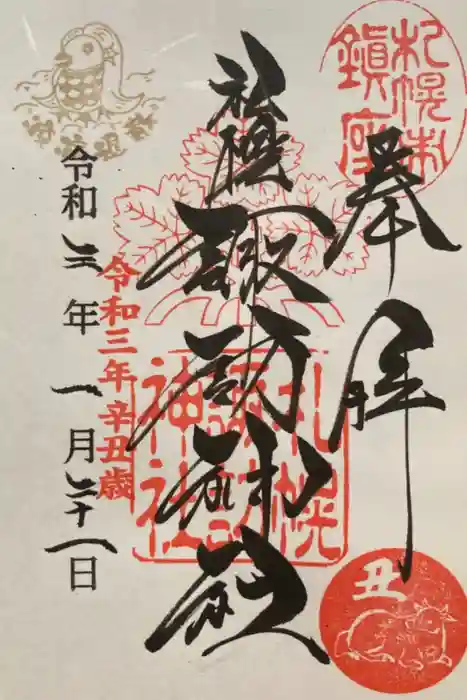 札幌市
鎮座
奉拝
札幌諏訪神社
札幌
諏訪
神社
令和三年辛丑歳
令和三年一月二十一日
丑